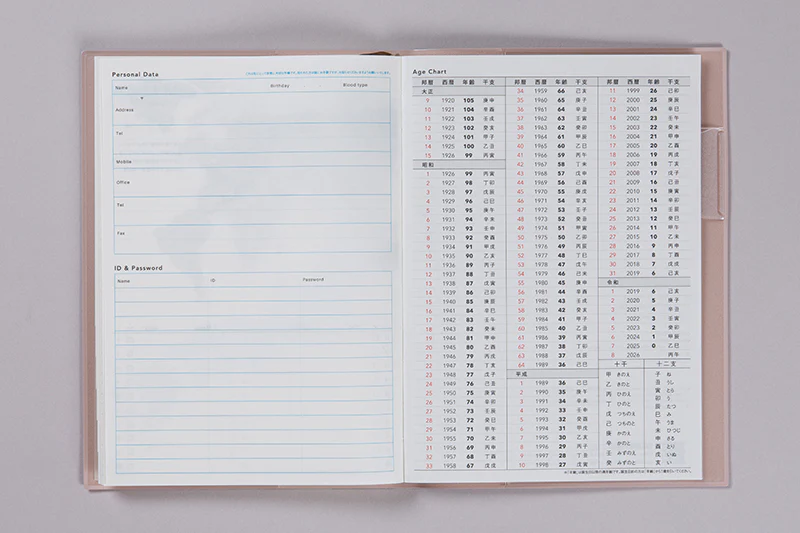 Personal Data
Name Birthday Blood type
Address
Tel
Mobile
Office
Tel
Fax
ID & Password
Name ID Password
Age Chart
邦暦 西暦 年齢 干支
大正
9 1920 105 庚申
10 1921 104 辛酉
11 1922 103 壬戌
12 1923 102 癸亥
13 1924 101 甲子
14 1925 100 乙丑
15 1926 99 丙寅
昭和
1 1926 99 丙寅
2 1927 98 丁卯
3 1928 97 戊辰
4 1929 96 己巳
5 1930 95 庚午
6 1931 94 辛未
7 1932 93 壬申
8 1933 92 癸酉
9 1934 91 甲戌
10 1935 90 乙亥
11 1936 89 丙子
12 1937 88 丁丑
13 1938 87 戊寅
14 1939 86 己卯
15 1940 85 庚辰
16 1941 84 辛巳
17 1942 83 壬午
18 1943 82 癸未
19 1944 81 甲申
20 1945 80 乙酉
21 1946 79 丙戌
22 1947 78 丁亥
23 1948 77 戊子
24 1949 76 己丑
25 1950 75 庚寅
26 1951 74 辛卯
27 1952 73 壬辰
28 1953 72 癸巳
29 1954 71 甲午
30 1955 70 乙未
31 1956 69 丙申
32 1957 68 丁酉
33 1958 67 戊戌
邦暦 西暦 年齢 干支
34 1959 66 己亥
35 1960 65 庚子
36 1961 64 辛丑
37 1962 63 壬寅
38 1963 62 癸卯
39 1964 61 甲辰
40 1965 60 乙巳
41 1966 59 丙午
42 1967 58 丁未
43 1968 57 戊申
44 1969 56 己酉
45 1970 55 庚戌
46 1971 54 辛亥
47 1972 53 壬子
48 1973 52 癸丑
49 1974 51 甲寅
50 1975 50 乙卯
51 1976 49 丙辰
52 1977 48 丁巳
53 1978 47 戊午
54 1979 46 己未
55 1980 45 庚申
56 1981 44 辛酉
57 1982 43 壬戌
58 1983 42 癸亥
59 1984 41 甲子
60 1985 40 乙丑
61 1986 39 丙寅
62 1987 38 丁卯
63 1988 37 戊辰
64 1989 36 己巳
平成
1 1989 36 己巳
2 1990 35 庚午
3 1991 34 辛未
4 1992 33 壬申
5 1993 32 癸酉
6 1994 31 甲戌
7 1995 30 乙亥
8 1996 29 丙子
9 1997 28 丁丑
10 1998 27 戊寅
邦暦 西暦 年齢 干支
11 1999 26 己卯
12 2000 25 庚辰
13 2001 24 辛巳
14 2002 23 壬午
15 2003 22 癸未
16 2004 21 甲申
17 2005 20 乙酉
18 2006 19 丙戌
19 2007 18 丁亥
20 2008 17 戊子
21 2009 16 己丑
22 2010 15 庚寅
23 2011 14 辛卯
24 2012 13 壬辰
25 2013 12 癸巳
26 2014 11 甲午
27 2015 10 乙未
28 2016 9 丙申
29 2017 8 丁酉
30 2018 7 戊戌
31 2019 6 己亥
令和
1 2019 6 己亥
2 2020 5 庚子
3 2021 4 辛丑
4 2022 3 壬寅
5 2023 2 癸卯
6 2024 1 甲辰
7 2025 0 乙巳
8 2026 丙午
十干
甲 きのえ
乙 きのと
丙 ひのえ
丁 ひのと
戊 つちのえ
己 つちのと
庚 かのえ
辛 かのと
壬 みずのえ
癸 みずのと
十二支
子 ね
丑 うし
寅 とら
卯 う
辰 たつ
巳 み
午 うま
未 ひつじ
申 さる
酉 とり
戌 いぬ
亥 い